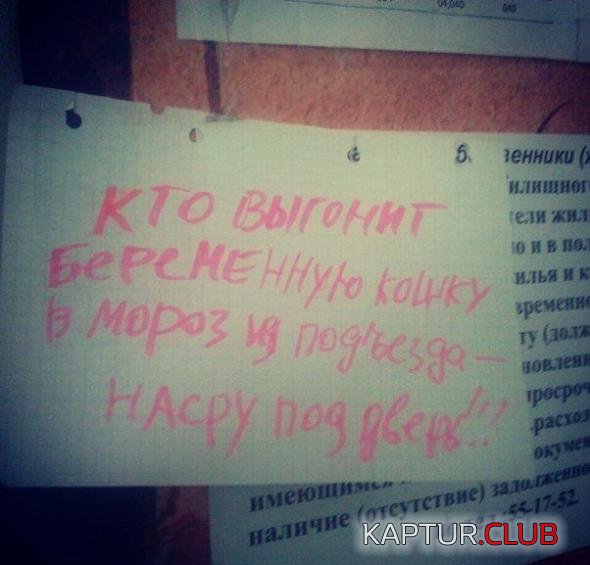 04,040 040
КТО ВЫГОНИТ
БЕРЕМЕННУЮ КОШКУ
В МОРОЗ ИЗ ПОДЪЕЗДА —
НАСРУ ПОД ДВЕРЬ!!!
6. венники (
илищног
ели жил
о и в пол
илья и к
временно
ту (долж
новлени
просроч
расхол
окумен
имеющимся
наличие (отсутствие) задолженно
55-17-52.
KAPTUR.CLUB